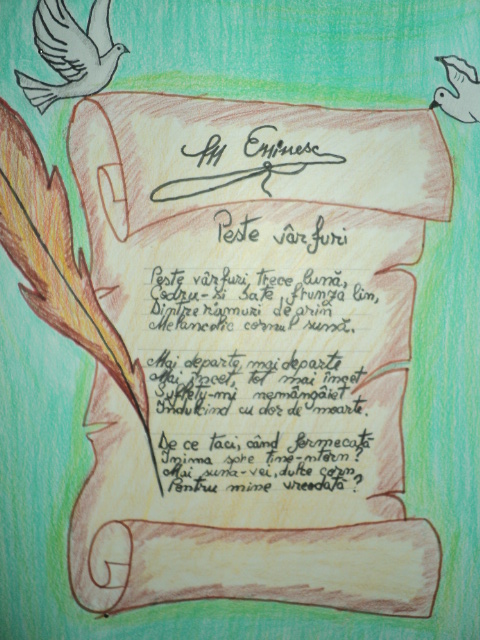 M Eminesc
Peste vârfuri
Peste vârfuri trece lună,
Codru-și bate frunza lin,
Dintre ramuri de arin
Melancolic cornul sună.
Mai departe, mai departe
Mai încet, tot mai încet
Sufletu-mi nemângâiet
Îndulcind cu dor de moarte.
De ce taci, când fermecată
Inima spre tine-ntorn?
Mai suna-vei, dulce corn
Pentru mine vreodată?